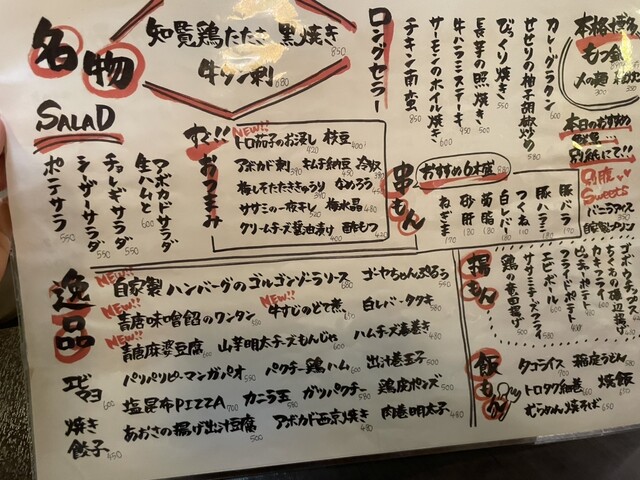 名物
知覧鶏たたき 黒焼き 850
牛タン刺 680
ロングセラー
チキン南蛮 850
サーモンのホイル焼き
牛ハラミステーキ
長芋の照焼き
びっくり焼き 550
せせりの柚子胡椒炒め
カレーグラタン
本格博多
もつ鍋
〆の麺
本日のおすすめ
別紙にて!!
別腹 Sweets
バニラアイス 350
自家製プリン
SALAD
ポテサラ 550
シーザーサラダ 550
チョレギサラダ 550
生ハムと アボカドサラダ 600
すぐ!!おつまみ
NEW!!
トロ茄子のお浸し 420 枝豆 400
アボカド刺 390 キムチ納豆 450 冷奴
梅しそたたききゅうり 390 なめろう
ササミの一夜干し 520 梅水晶 480
クリームチーズ醤油漬け 400 酢もつ 420
串もん
おすすめ6本盛
ねぎま 170
砂肝 180
首脂
白レバー
つくね
豚ハラミ
豚バラ
逸品
NEW!!
自家製ハンバーグのゴルゴンゾーラソース 680 ゴーヤちゃんぷるう 550
NEW!!
青唐味噌餡のワンタン NEW!! 牛すじのどて煮 680 白レバータタキ 580
NEW!!
青唐麻婆豆腐 600 山芋明太チーズもんじゃ 680 ハムチーズ春巻き 480
エビマヨ 600
パリパリピーマンガパオ 550 パクチー鶏ハム 600 出汁巻玉子 500
塩昆布PIZZA 700 カニラ玉 580 ガツパクチー 580 鶏皮ポンズ 450
焼き餃子 450
あおさの揚げ出汁豆腐 500 アボカド西京焼き 480 肉巻明太子 480
揚もん
鶏の唐田揚げ 500
ササミチーズフライ
エビボール
フライドポテト
ピッツァポテト
カキフライ
ちくわの磯 揚げ
ゴボウチップス
飯もん
タコライス 750 稲庭うどん 500
トロタク細巻 660 焼飯 650
むらめん焼そば 650